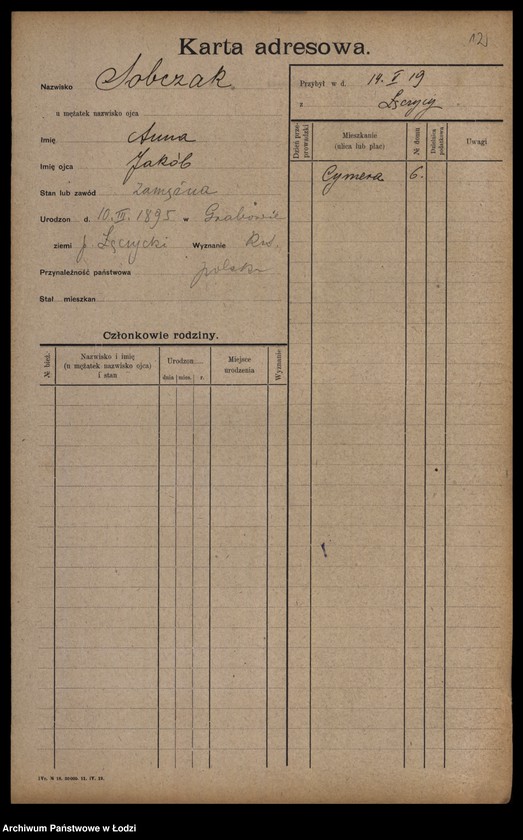 12
Karta adresowa.
Nazwisko Sobczak
u mężatek nazwisko ojca
Imię Anna
Imię ojca Jakób
Stan lub zawód zamężna
Urodzon d. 10.III.1895 w Grabowie
ziemi p. Łęczycki Wyznanie
Przynależność państwowa polska
Stał. mieszkan
Członkowie rodziny.
№ bież. Nazwisko i imię (u mężatek nazwisko ojca) i stan Urodzon dnia mies. r. Miejsce urodzenia Wyznanie
Przybył w d. 19. I 19
z Łęczycy
Dzień przeprowadzki Mieszkanie (ulica lub plac) № domu Dzielnica Uwagi
Cymera 6.
Archiwum Państwowe w Łodzi